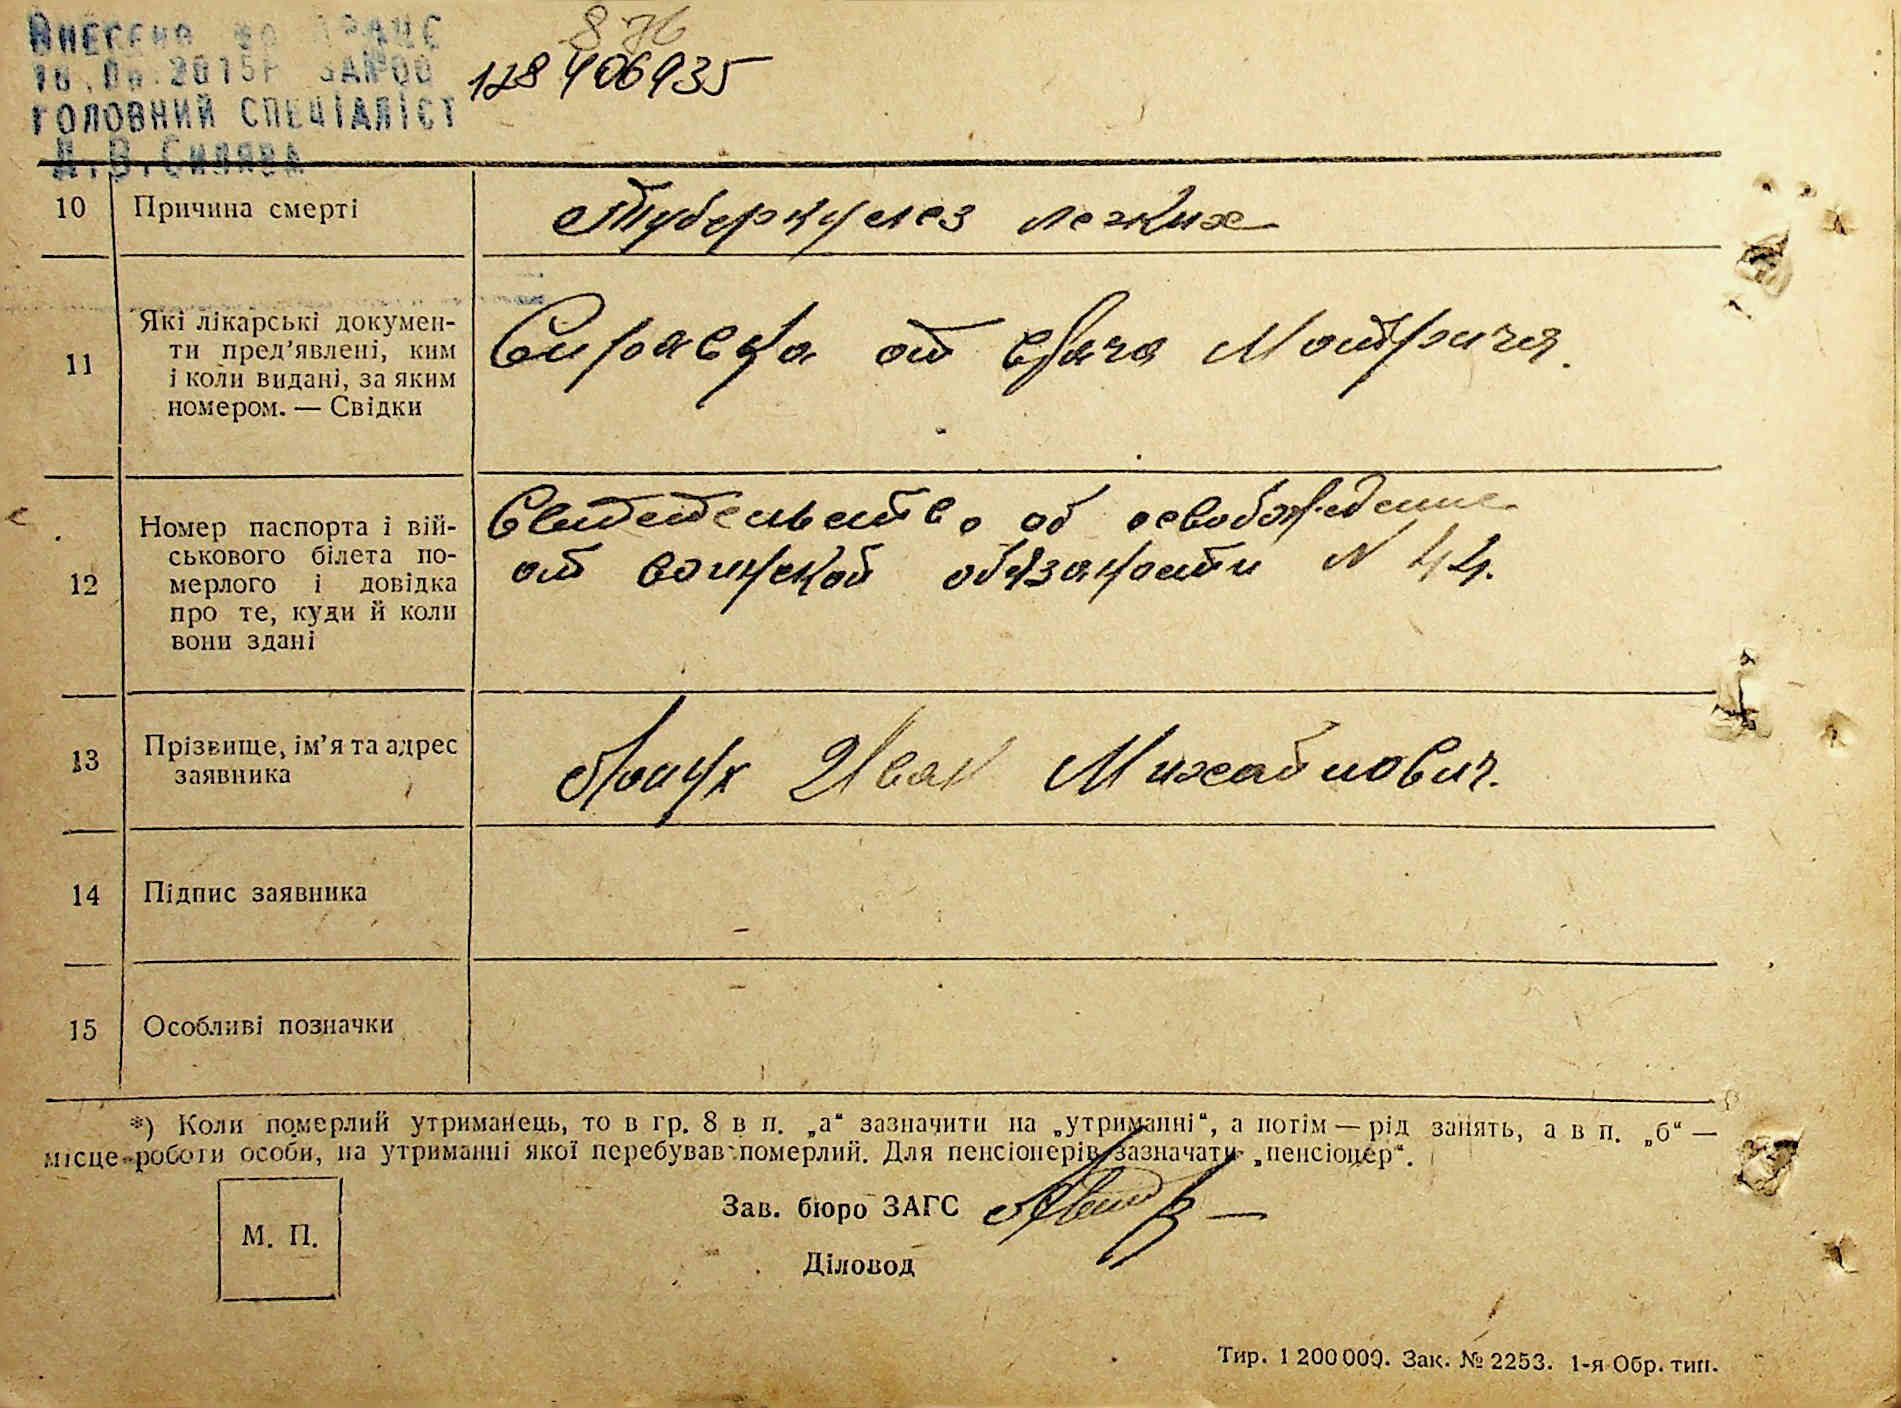 Внесено до ДРАЦС
876
10.06.2015р ЗАПОО
128406935
головний спеціаліст
10 Причина смерті Туберкулез легких
11 Які лікарські докумен-
ти пред’явлені, ким
і коли видані, за яким
номером. — Свідки
Справка от врача
12 Номер паспорта і вій-
ськового білета по-
мерлого і довідка
про те, куди й коли
вони здані
Свидетельство об освобождение
от воинской обязаности N 44.
13 Прізвище, ім’я та адрес
заявника
Иван Михайлович.
14 Підпис заявника
15 Особливі позначки
*) Коли померлий утриманець, то в гр. 8 в п. „а“ зазначити на „утриманні“, а потім — рід занять, а в п. „б“ —
місце роботи особи, на утриманні якої перебував померлий. Для пенсіонерів зазначати „пенсіонер“.
Зав. бюро ЗАГС
М. П.
Діловод
Тир. 1 200 000. Зак. № 2253. 1-я Обр. тип.